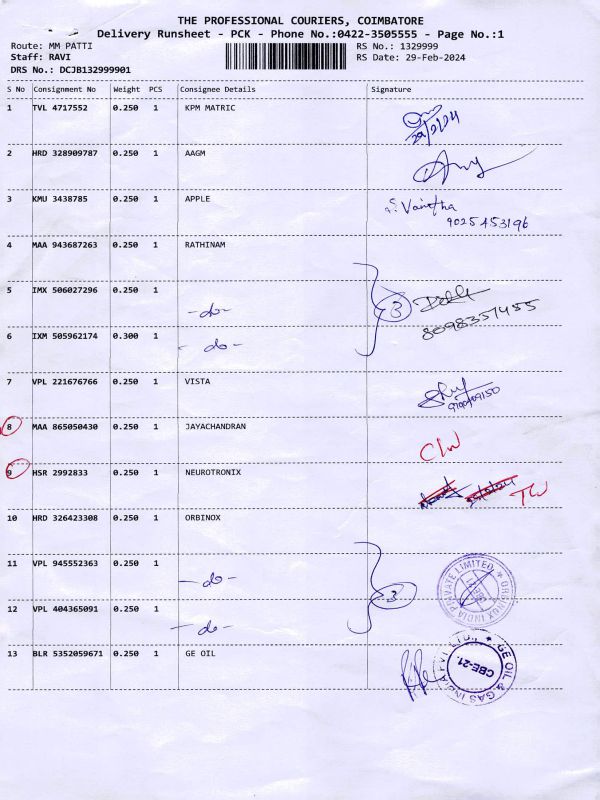 THE PROFESSIONAL COURIERS, COIMBATORE
Delivery Runsheet - PCK - Phone No.:0422-3505555 - Page No.:1
Route: MM PATTI RS No.: 1329999
Staff: RAVI RS Date: 29-Feb-2024
DRS No.: DCJB132999901
S No Consignment No Weight PCS Consignee Details Signature
1 TVL 4717552 0.250 1 KPM MATRIC
29/2/24
2 HRD 328909787 0.250 1 AAGM
3 KMU 3438785 0.250 1 APPLE S. Vanitha
9025453196
4 MAA 943687263 0.250 1 RATHINAM
5 IMX 506027296 0.250 1 -do- 3
8098357455
6 IXM 505962174 0.300 1 -do-
7 VPL 221676766 0.250 1 VISTA
8 MAA 865050430 0.250 1 JAYACHANDRAN
9 HSR 2992833 0.250 1 NEUROTRONIX
10 HRD 326423308 0.250 1 ORBINOX
11 VPL 945552363 0.250 1 -do- 3
ORBINOX INDIA PRIVATE LIMITED *
12 VPL 404365091 0.250 1 -do-
13 BLR 5352059671 0.250 1 GE OIL
* GE OIL & GAS INDIA PVT. LTD.,
CBE-21